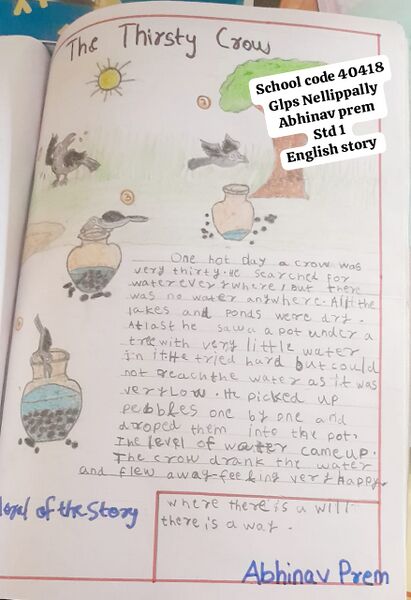 The Thirsty Crow
School code 40418
Glps Nellippally
Abhinav prem
Std 1
English story
2
3
One hot day a crow was
very thirty. He searched for
water everywhere, but there
was no water anywhere. All the
lakes and ponds were dry.
Atlast he saw a pot under a
tree with very little water
in it. He tried hard but could
not reach the water as it was
very Low. He picked up
pebbles one by one and
droped them into the pot.
The level of water came up.
The crow drank the water
and flew away feeling very Happy.
of the Story
where there is a will
there is a way.
Abhinav Prem